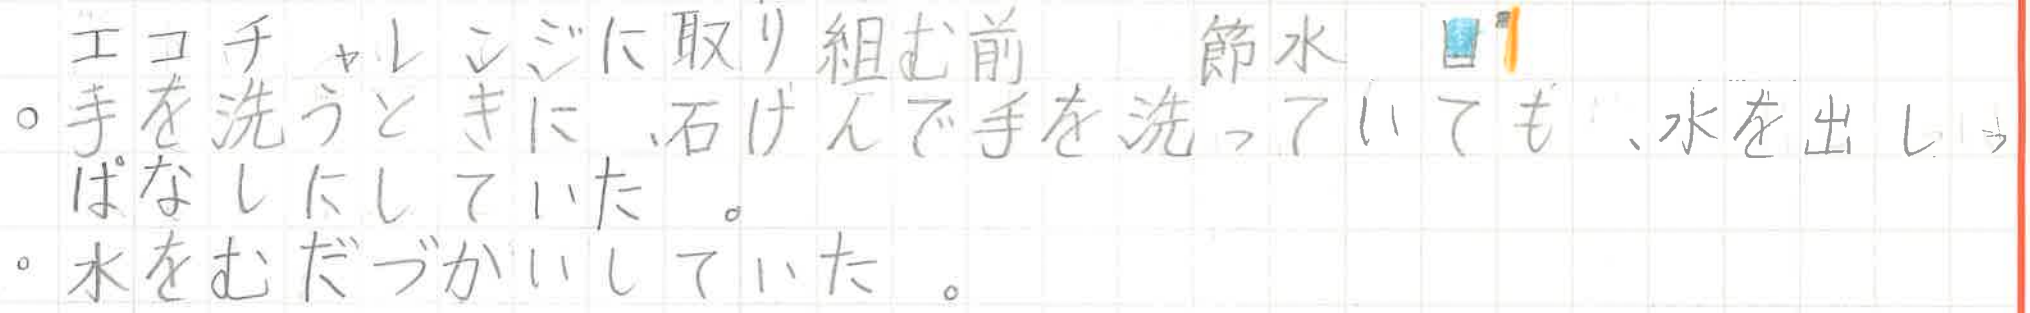 エコチャレンジに取り組む前　節水
○手を洗うときに、石けんで手を洗っていても、水を出しっ
ぱなしにしていた。
○水をむだづかいしていた。